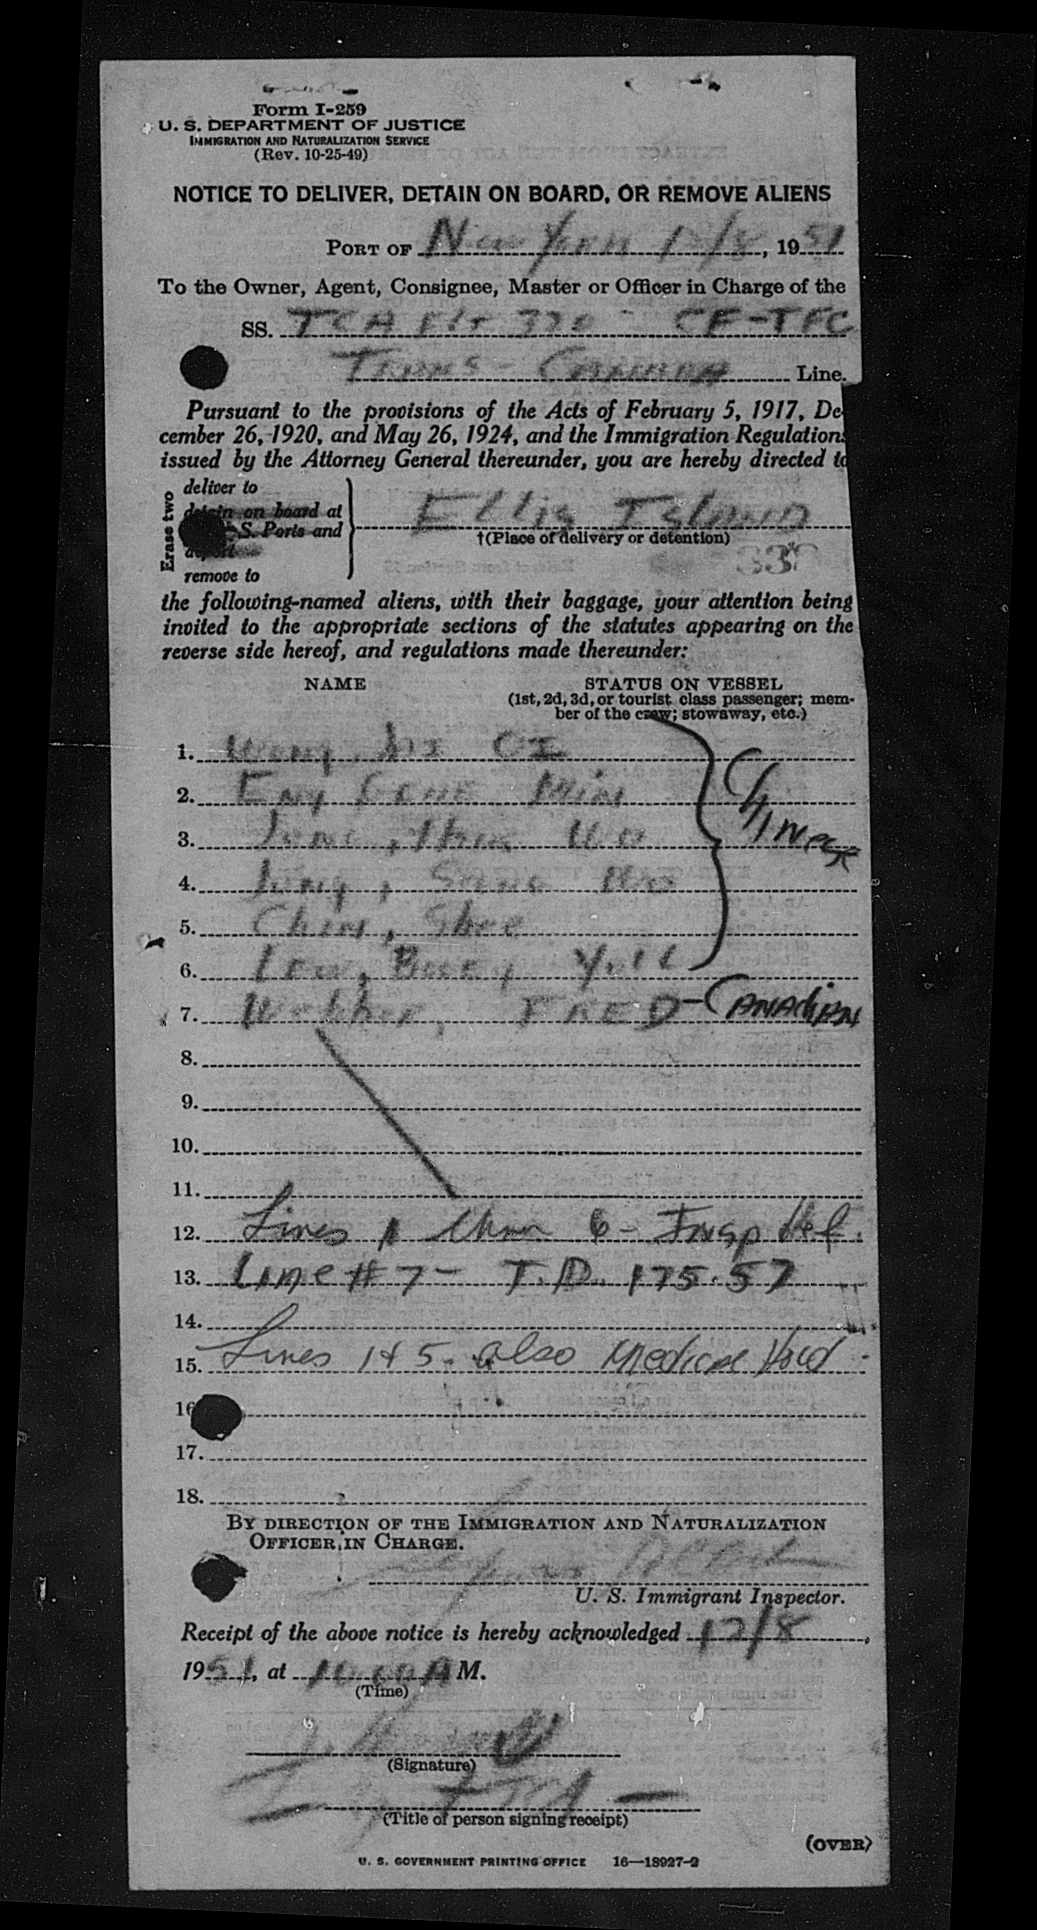 Form I-259
U. S. DEPARTMENT OF JUSTICE
IMMIGRATION AND NATURALIZATION SERVICE
(Rev. 10-25-49)
NOTICE TO DELIVER, DETAIN ON BOARD, OR REMOVE ALIENS
PORT OF New York 12/8, 1951
To the Owner, Agent, Consignee, Master or Officer in Charge of the
SS. TCA Flt 320 - CF-TFC
Trans-Canada Line.
Pursuant to the provisions of the Acts of February 5, 1917, De-
cember 26, 1920, and May 26, 1924, and the Immigration Regulations
issued by the Attorney General thereunder, you are hereby directed to
Erase two
deliver to
detain on board at
S. Ports and
deport
remove to
Ellis Island
†(Place of delivery or detention)
the following-named aliens, with their baggage, your attention being
invited to the appropriate sections of the statutes appearing on the
reverse side hereof, and regulations made thereunder:
NAME STATUS ON VESSEL
(1st, 2d, 3d, or tourist class passenger; mem-
ber of the crew; stowaway, etc.)
1. Wong, OI
2. Eng Min
3. Jung,
4. Jung,
5. Chin, Shee
6.
Chinese
7. FRED - CANADIAN
8.
9.
10.
11.
12. Lines 1 6 - Insp Def.
13. Line #7 - T.D. 175.57
14.
15. Lines 1 & 5 - also Medical Hold -
16
17.
18.
BY DIRECTION OF THE IMMIGRATION AND NATURALIZATION
OFFICER IN CHARGE.
U. S. Immigrant Inspector.
Receipt of the above notice is hereby acknowledged 12/8,
1951, at 10 A M.
(Time)
(Signature)
TCA
(Title of person signing receipt)
(OVER)
U. S. GOVERNMENT PRINTING OFFICE 16—18927-2